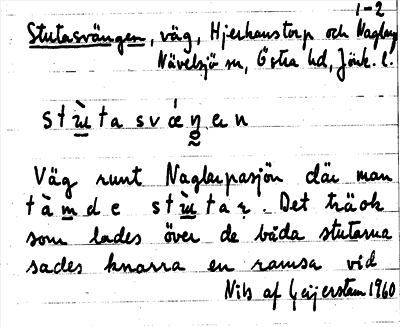 1-2
Stutasvängen, väg, Hjerkanstorp och Naglarp
Nävelsjö sn, Östra hd, Jönk. l.
stu̠̇ta sv ǽŋən
Väg runt Naglarpasjön där man
tàm̠de stu̠̇taɽ. Det träok
som lades över de båda stutarna
sades knarra en ramsa vid
Nils af Geijerstam 1960